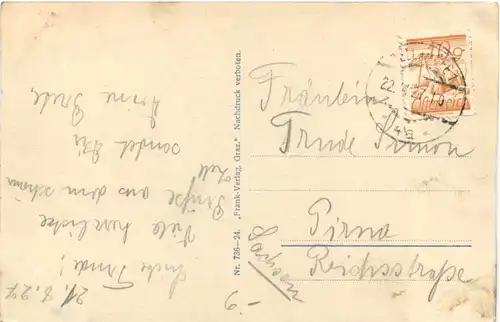 21.8.27
Liebe Trude!
Viele herzliche
Grüße aus dem schönen
Zell
sendet Dir
Nr. 736—24. „Frank-Verlag, Graz." Nachdruck verboten.
Fräulein
Trude Simon
Pirna
Reichsstraße
Sachsen
22.
10